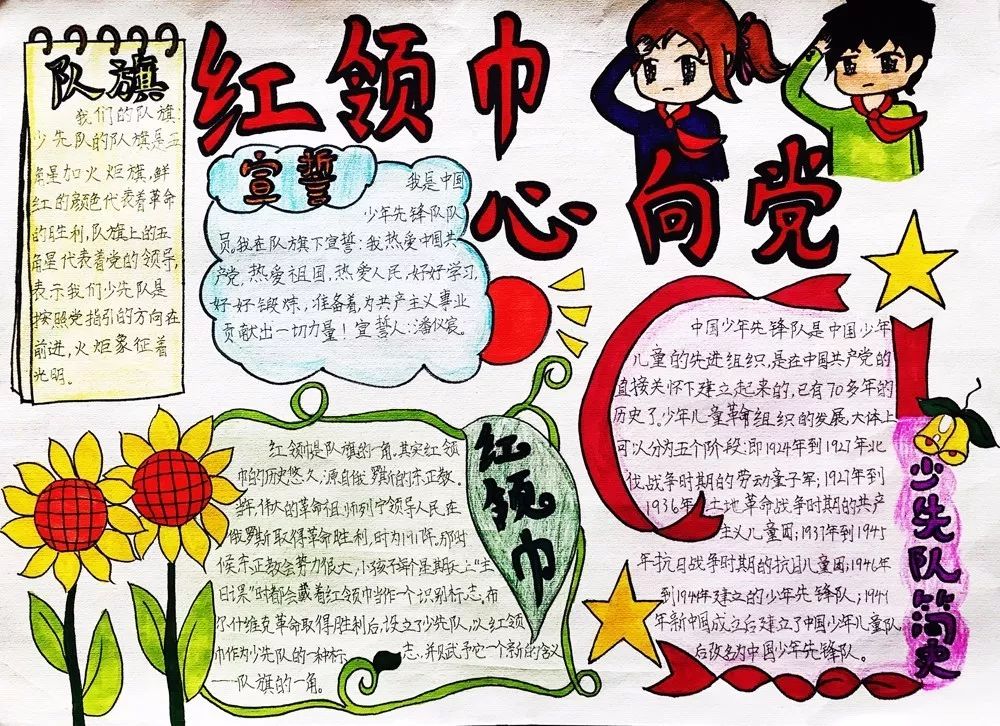 红领巾
心向党
队旗
我们的队旗:
少先队的队旗是五
角星加火炬旗,鲜
红的颜色代表着革命
的胜利,队旗上的五
角星代表着党的领导,
表示我们少先队是
按照党指引的方向在
前进,火炬象征着
光明。
宣誓
我是中国
少年先锋队队
员。我在队旗下宣誓:我热爱中国共
产党,热爱祖国,热爱人民,好好学习,
好好锻炼,准备着,为共产主义事业
贡献出一切力量!宣誓人:潘仪宸。
红领巾
红领巾是队旗的一角,其实红领
巾的历史悠久,源自俄罗斯的东正教。
当年,伟大的革命祖师列宁领导人民在
俄罗斯取得革命胜利,时为1917年。那时
候东正教会势力很大,小孩子每个星期天上“主
日课”时都会戴着红领巾当作一个识别标志。布
尔什维克革命取得胜利后,设立了少先队,以红领
巾作为少先队的一种标志,并赋予它一个新的含义
——队旗的一角。
少先队简史
中国少年先锋队是中国少年
儿童的先进组织,是在中国共产党的
直接关怀下建立起来的,已有70多年的
历史了。少年儿童革命组织的发展,大体上
可以分为五个阶段:即1924年到1927年北
伐战争时期的劳动童子军;1927年到
1936年土地革命战争时期的共产
主义儿童团;1937年到1945
年抗日战争时期的抗日儿童团;1946年
到1949年建立的少年先锋队;1949
年新中国成立后建立了中国少年儿童队,
后改名为中国少年先锋队。